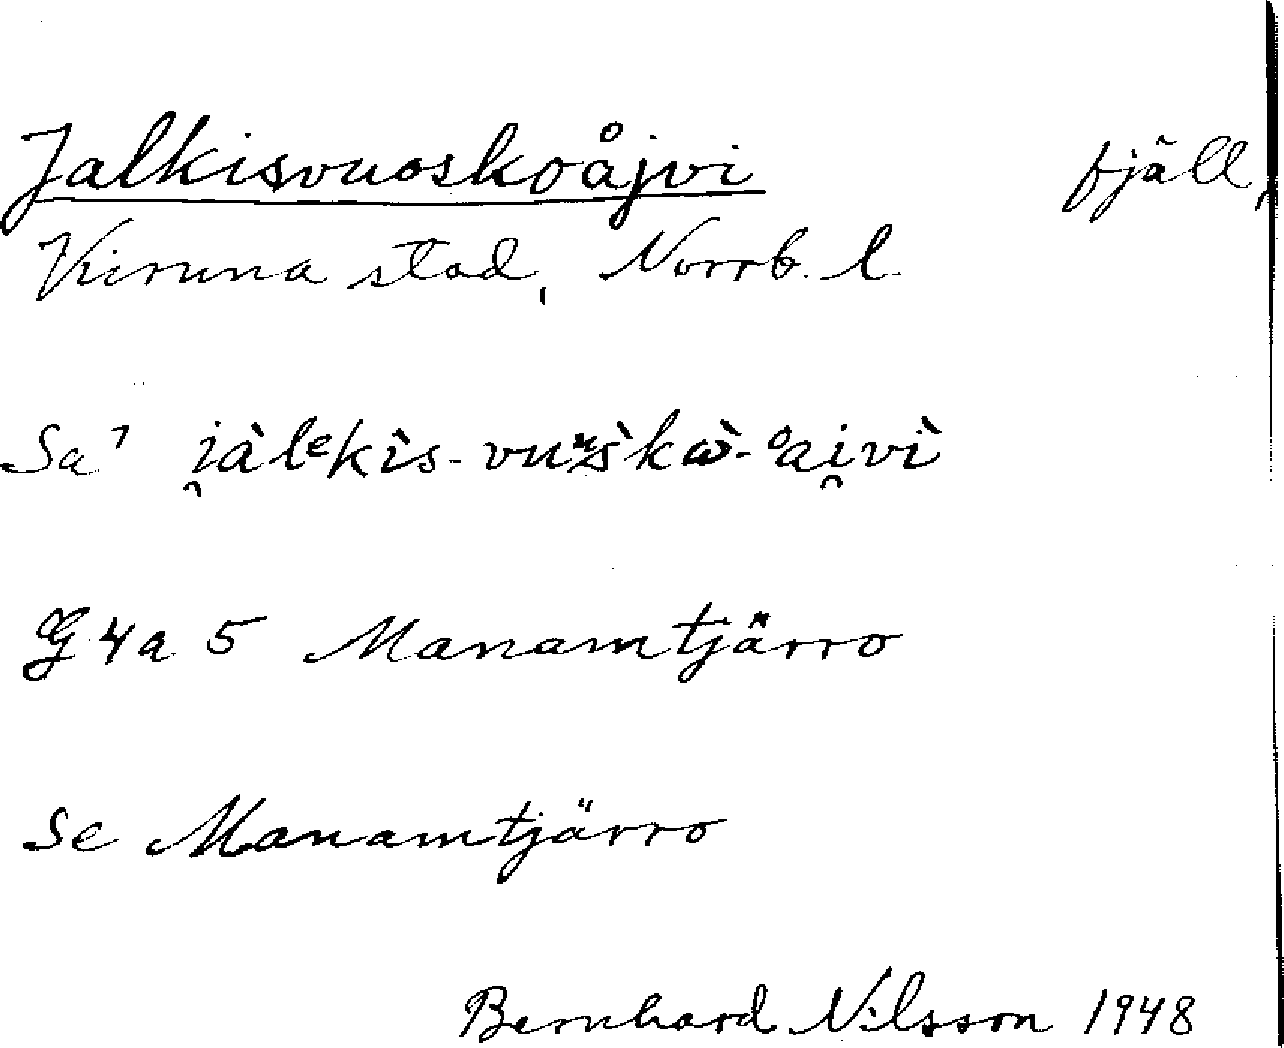 Jalkisvuoskoåjvi fjäll,
Kiruna stad, Norrb. l
Sa⁷ i̯àlᵉkìs-vuᵘs̀kὼ-ᵒai̯vì
G 4 a 5 Manamtjärro
Se Manamtjärro
Bernhard Nilsson 1948